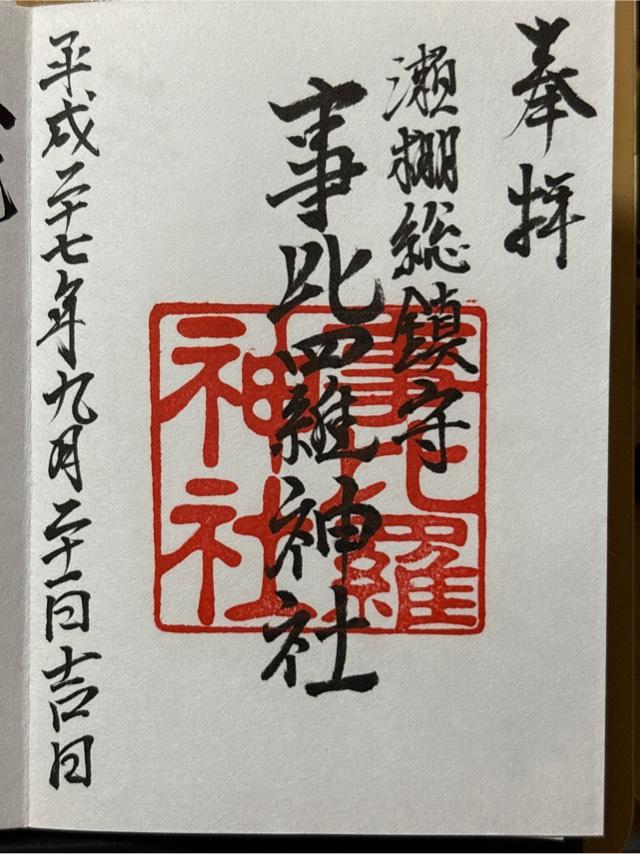 奉拝
瀬棚総鎮守
事比羅神社
平成二十七年九月二十一日吉日
事比羅
神社